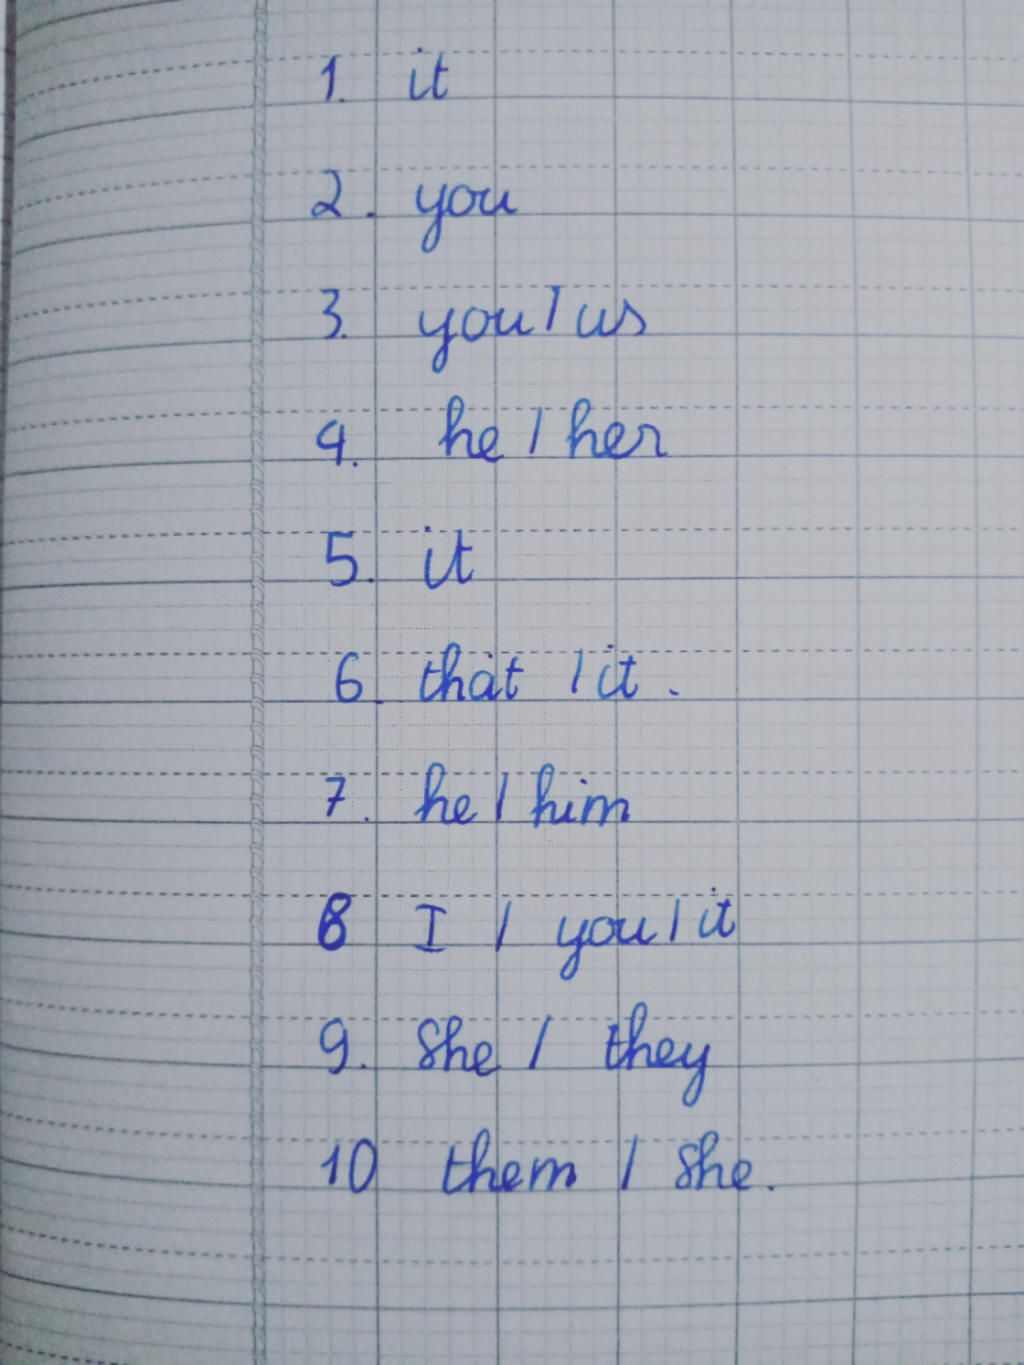 1. it
2. you
3. you / us
4. he / her
5. it
6. that / it.
7. he / him
8 I / you / it
9. She / they
10 them / she.